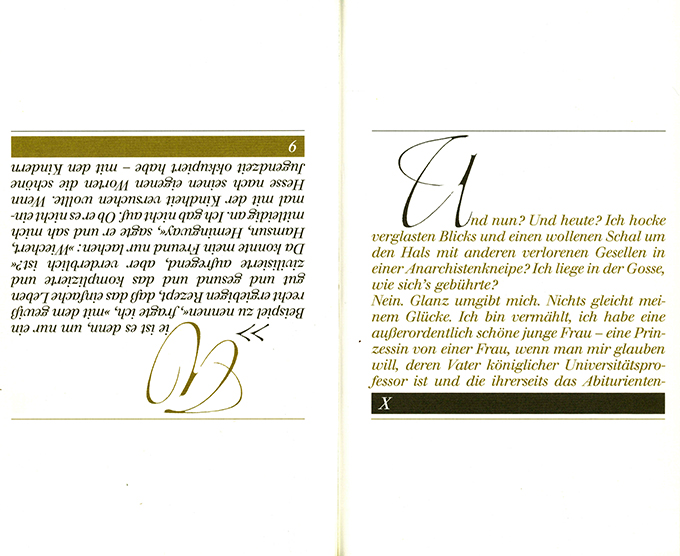 »Wie ist es denn, um nur ein
Beispiel zu nennen«, fragte ich, »mit dem gewiß
recht ergiebigen Rezept, daß das einfache Leben
gut und gesund und das komplizierte und
zivilisierte aufregend, aber verderblich ist?«
Da konnte mein Freund nur lachen: »Wiechert,
Hamsun, Hemingway«, sagte er und sah mich
mitleidig an. Ich gab nicht auf: Ob er es nicht ein-
mal mit der Kindheit versuchen wolle. Wenn
Hesse nach seinen eigenen Worten die schöne
Jugendzeit okkupiert habe – mit den Kindern
6
Und nun? Und heute? Ich hocke
verglasten Blicks und einen wollenen Schal um
den Hals mit anderen verlorenen Gesellen in
einer Anarchistenkneipe? Ich liege in der Gosse,
wie sich's gebührte?
Nein. Glanz umgibt mich. Nichts gleicht mei-
nem Glücke. Ich bin vermählt, ich habe eine
außerordentlich schöne junge Frau – eine Prin-
zessin von einer Frau, wenn man mir glauben
will, deren Vater königlicher Universitätspro-
fessor ist und die ihrerseits das Abiturienten-
X